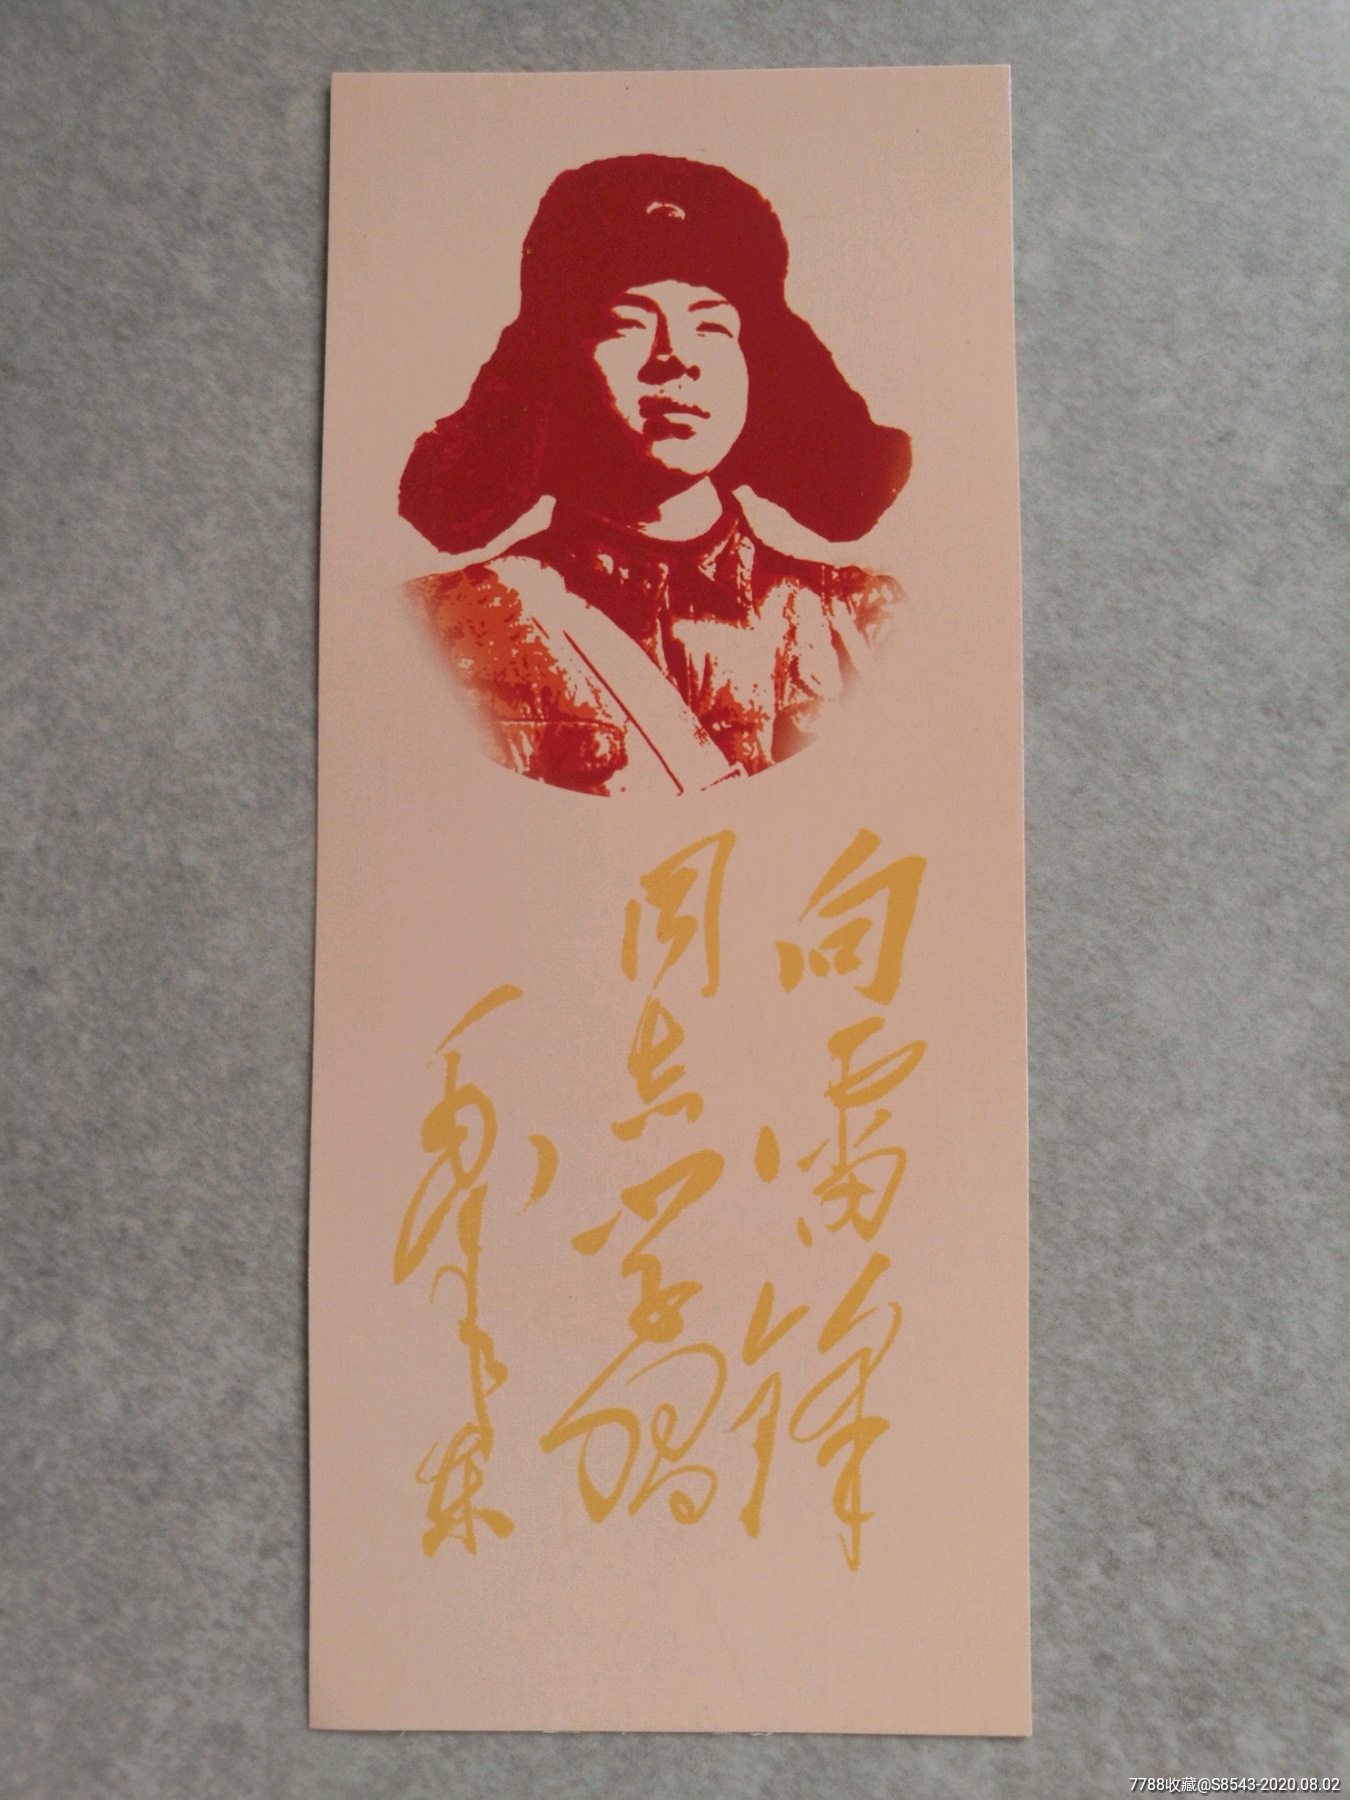 向雷锋
同志学习
毛泽东
7788收藏@S8543-2020.08.02